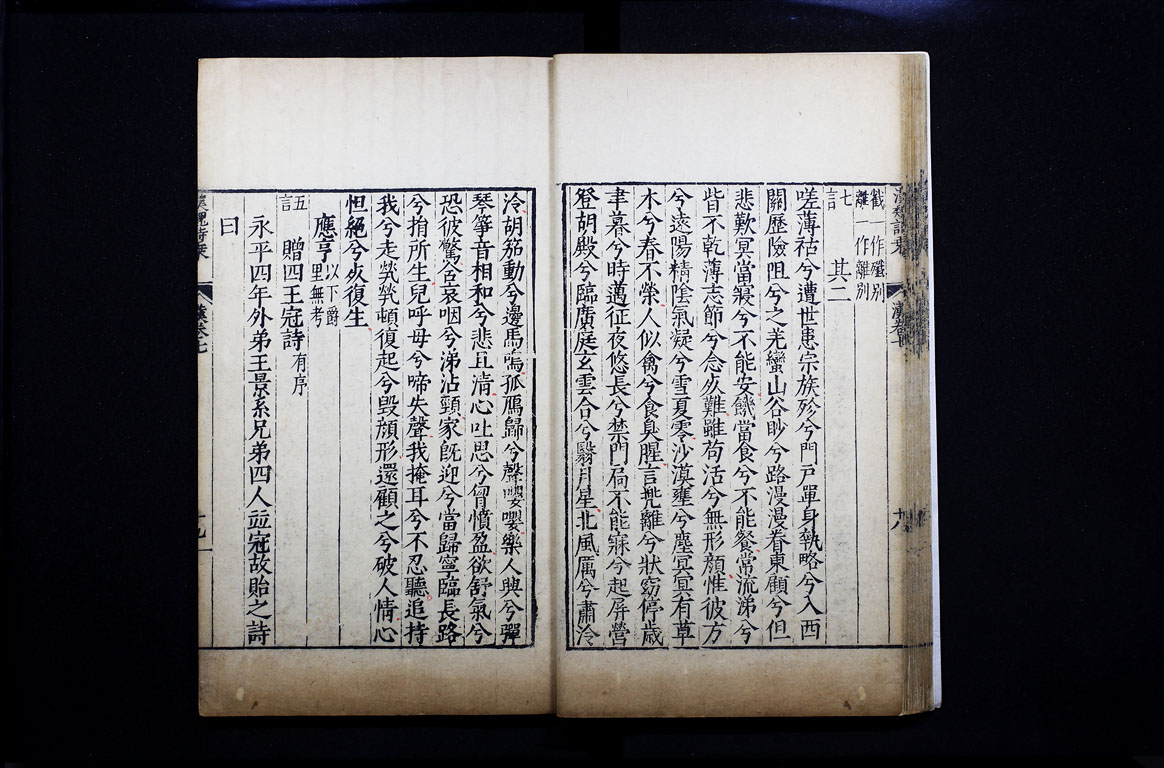 截一作殲別
離一作離別
七言
其二
嗟薄祜兮遭世患宗族殄兮門戶單身執略兮入西
關歷險阻兮之羌蠻山谷眇兮路漫漫眷東顧兮但
悲歎冥當寢兮不能安饑當食兮不能餐常流涕兮
眥不乾薄志節兮念死難雖苟活兮無形顏惟彼方
兮遠陽精陰氣凝兮雪夏零沙漠壅兮塵冥冥有草
木兮春不榮人似禽兮食臭腥言兜離兮狀窈停歲
聿暮兮時邁征夜悠長兮禁門扃不能寐兮起屏營
登胡殿兮臨廣庭玄雲合兮翳月星北風厲兮肅泠
泠胡笳動兮邊馬鳴孤鴈歸兮聲嚶嚶樂人興兮彈
琴箏音相和兮悲且清心吐思兮胷憤盈欲舒氣兮
恐彼驚含哀咽兮涕沾頸家旣迎兮當歸寧臨長路
兮捐所生兒呼母兮啼失聲我掩耳兮不忍聽追持
我兮走煢煢頓復起兮毀顏形還顧之兮破人情心
怛絕兮死復生
應亨
以下爵
里無考
五言
贈四王冠詩
有序
永平四年外弟王景系兄弟四人並冠故貽之詩
曰
漢魏詩乘
漢卷七
十九